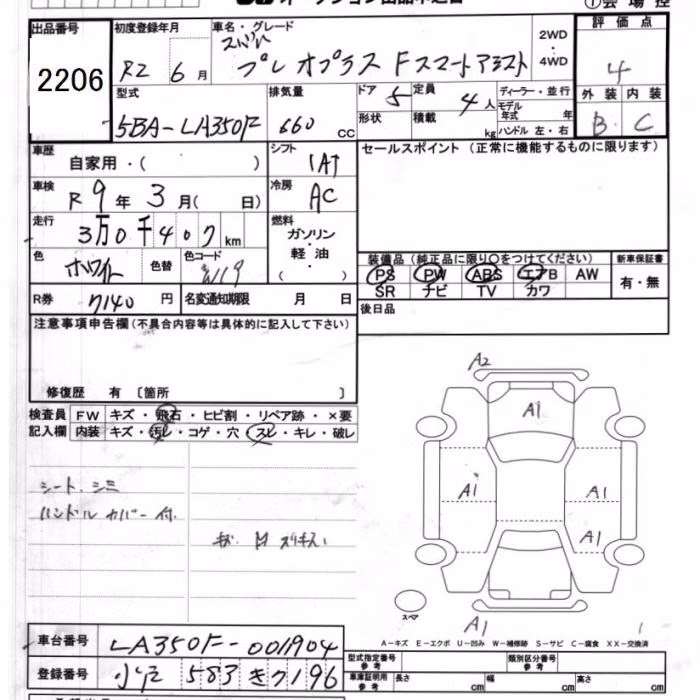 ①会場控
出品番号
2206
初度登録年月
R2 6月
車名・グレード
スバル
プレオプラス Fスマートアシスト
2WD
・
4WD
評価点
4
外装 内装
B C
型式
5BA-LA350F
排気量
660 cc
ドア 5
形状
定員 4人
積載 kg
ディーラー・並行
モデル年式 年
ハンドル 左・右
車歴
自家用・( )
シフト
IAT
セールスポイント (正常に機能するものに限ります)
車検
R9年3月( 日)
冷房
AC
走行
3万0千407km
燃料
ガソリン
・
軽油
( )
色
ホワイト
色替
色コード
W19
装備品 (純正品に限り○をつけてください)
PS PW ABS エアB AW
SR ナビ TV カワ
新車保証書
有・無
R券 7140円
名変通知期限 月 日
後日品
注意事項申告欄 (不具合内容等は具体的に記入して下さい)
修復歴 有 〔箇所 〕
検査員記入欄
FW キズ・飛石・ヒビ割・リペア跡・×要
内装 キズ・汚レ・コゲ・穴・スレ・キレ・破レ
シート、シミ
ハンドルカバー付.
A2
A1
A1
A1
A1
スペア
A1
A－キズ E－エクボ U－凹み W－補修跡 S－サビ C－腐食 XX－交換済
車台番号
LA350F-001904
登録番号
583 き 7196
型式指定番号 参考
類別区分番号 参考
車庫証明用 参考
長さ cm
幅 cm
高さ cm